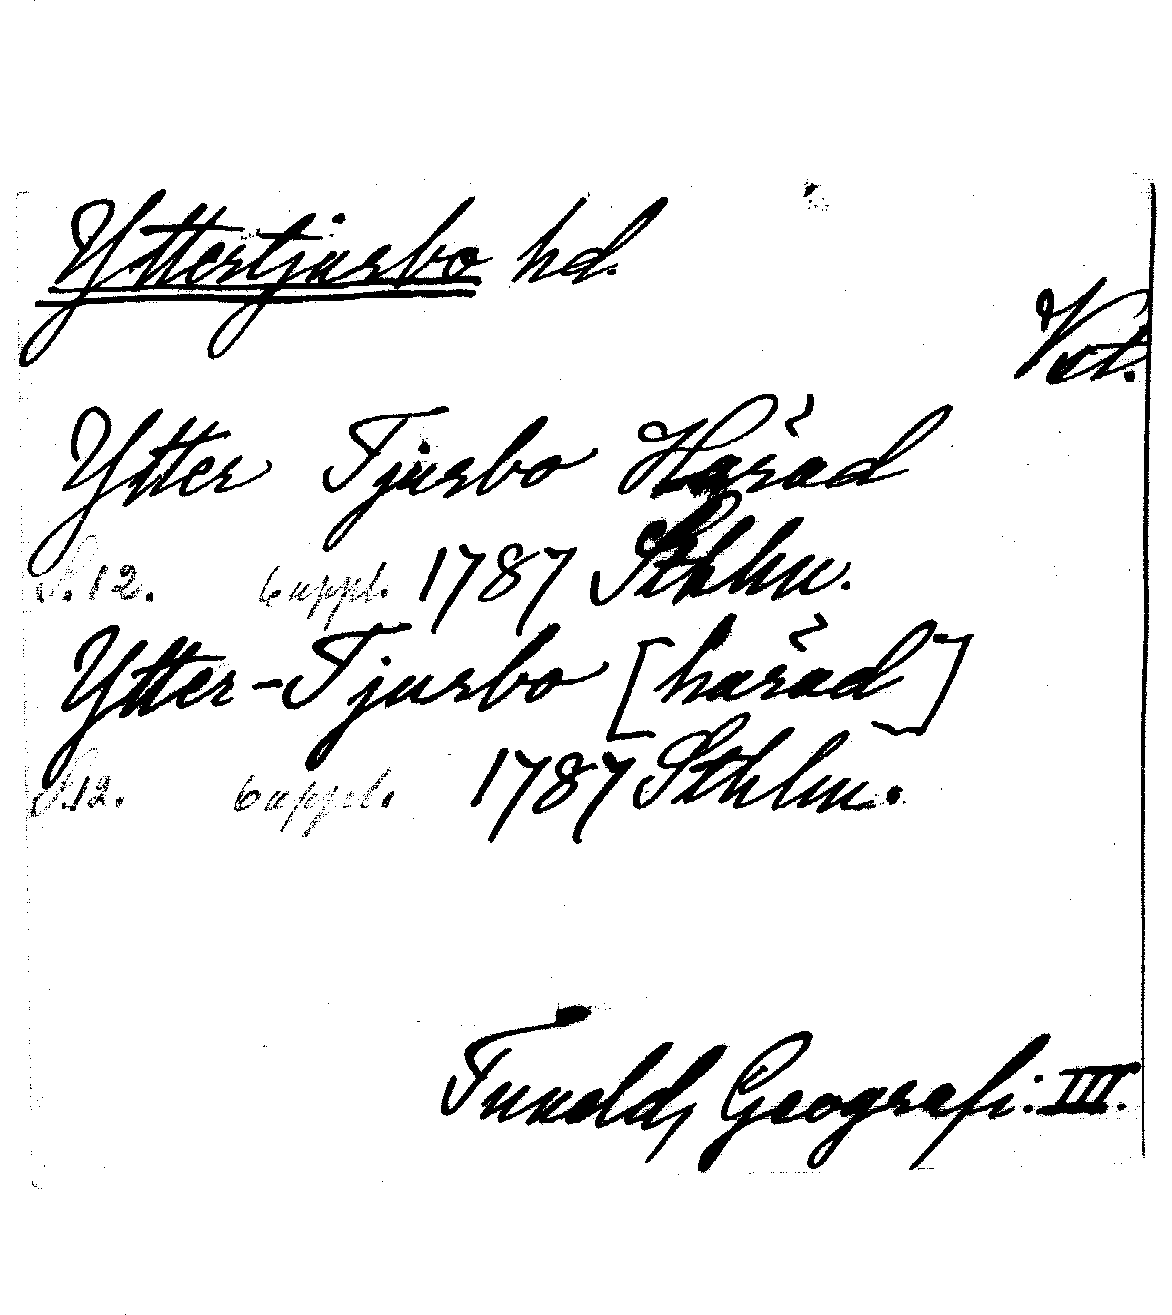 Yttertjurbo hd.
Vst.
Ytter Tjurbo Härad
S. 12. 6 uppl. 1787 Sthlm.
Ytter-Tjurbo [härad]
S. 12. 6 uppl. 1787 Sthlm.
Tuneld, Geografi. III.